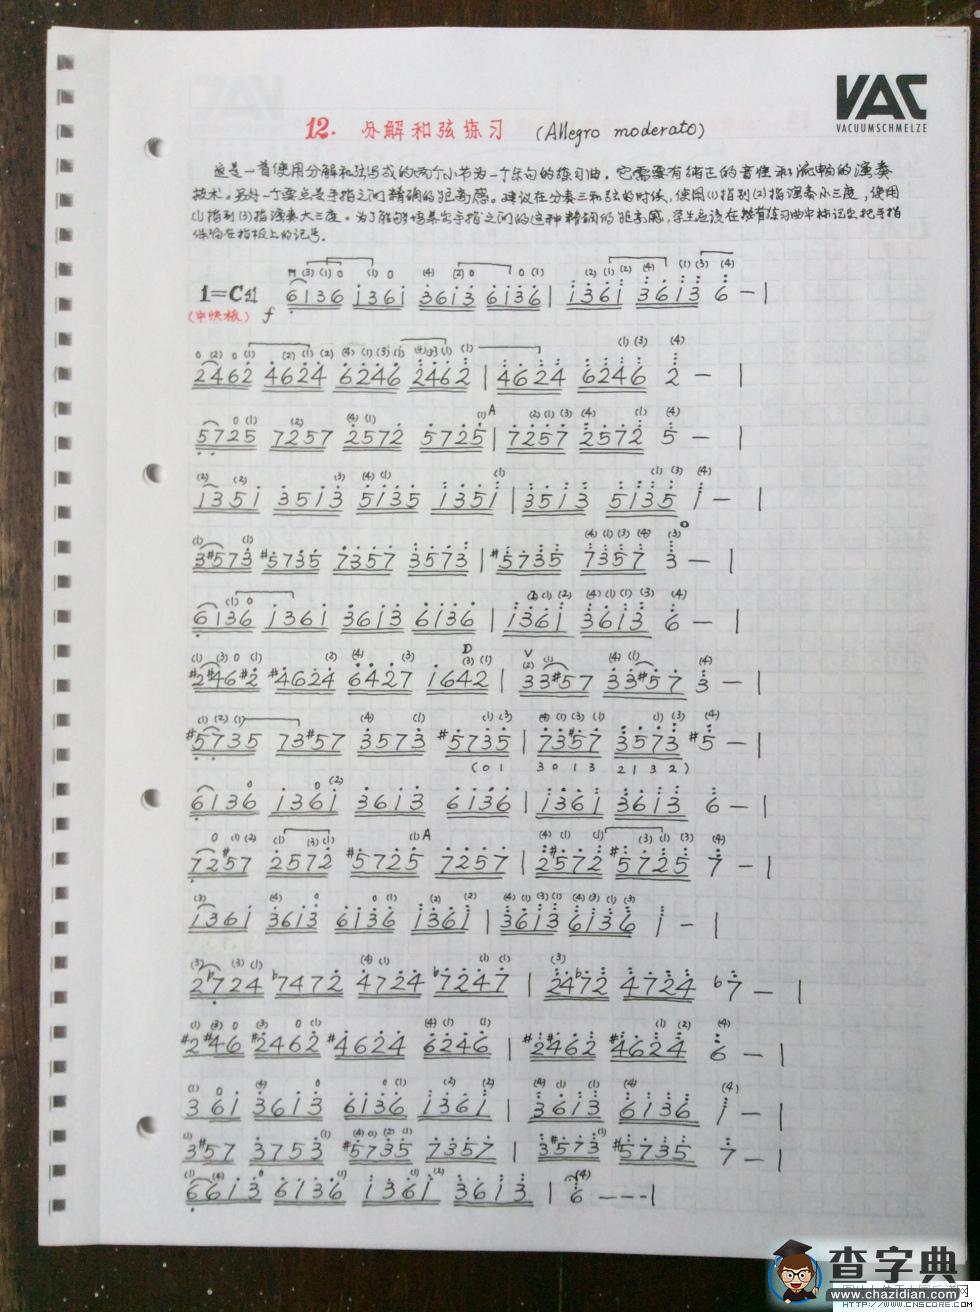 VAC
VACUUMSCHMELZE
12. 分解和弦练习 (Allegro moderato)
这是一首使用分解和弦写成的两个小节为一个乐句的练习曲，它需要有纯正的音准和流畅的演奏
技术。另外一个要点是手指之间精确的距离感。建议在分奏三和弦的时候，使用(1)指到(2)指演奏小三度，使用
(1)指到(3)指演奏大三度。为了能够培养出手指之间的这种精确的距离感，学生应该在整首练习曲中标记出把手指
保留在指板上的记号。
1=C
(中快板) f
6136 1361 3613 6136 | 1361 3613 6 — |
2462 4624 6246 2462 | 4624 6246 2 — |
5725 7257 2572 5725 | 7257 2572 5 — |
1351 3513 5135 1351 | 3513 5135 1 — |
3#573 #5735 7357 3573 | #5735 7357 3 — |
6136 1361 3613 6136 | 1361 3613 6 — |
#2#46#2 #4624 6427 1642 | 33#57 33#57 3 — |
#5735 73#57 3573 #5735 | 73#57 3573 #5 — |
(01 3013 2132)
6136 1361 3613 6136 | 1361 3613 6 — |
72#57 2572 #5725 7257 | 2#572 #5725 7 — |
1361 3613 6136 1361 | 3613 6136 1 — |
2♭724 ♭7472 4724 ♭7247 | 24♭72 4724 ♭7 — |
#2#46 #2462 #4624 6246 | #2#462 #4624 6 — |
3 61 3613 6136 1361 | 3613 6136 1 — |
3#57 3753 #5735 7357 | 3#573 #5735 7 — |
6613 6136 1361 3613 | 6 — — — |
查字典
www.chazidian.com
HTTP://WWW.CNSCORE.COM